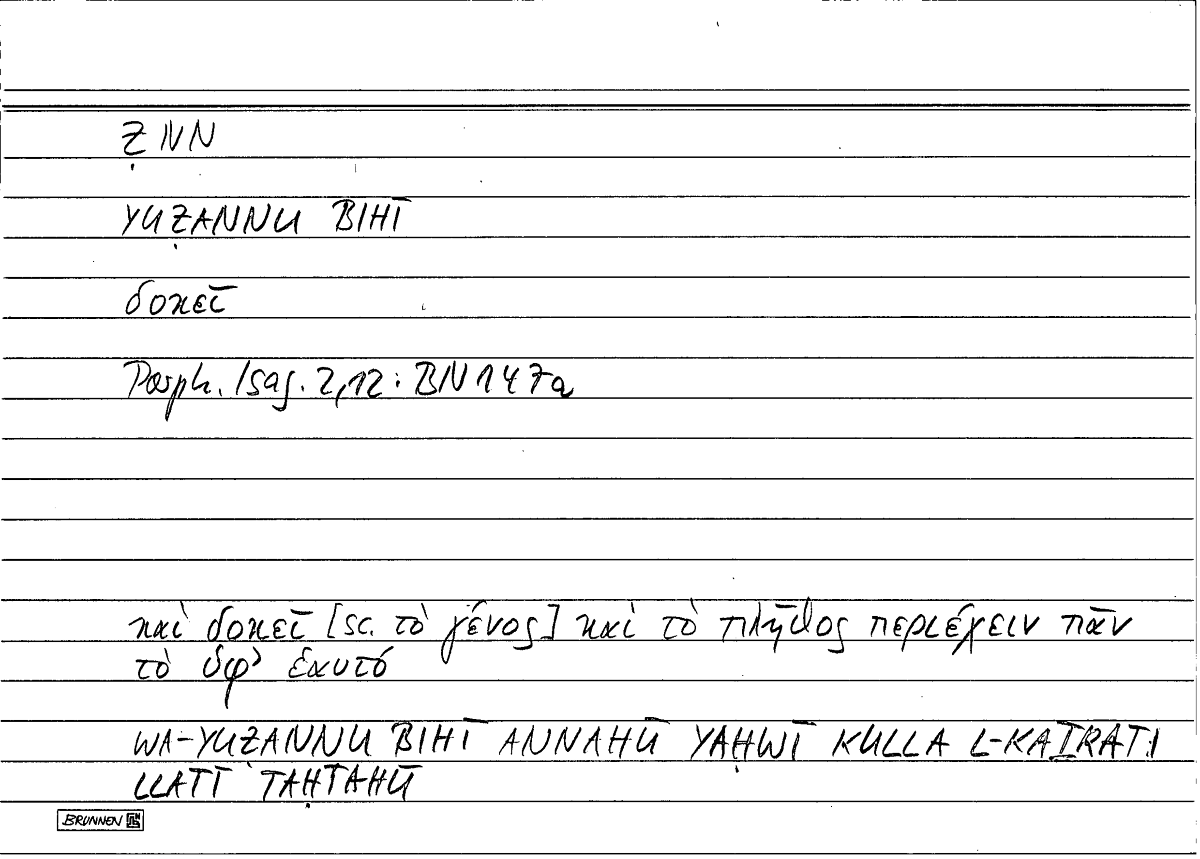 ẒNN
YUẒANNU BIHĪ
δοκεῖ
Porph. Isag. 2,12: BN 147a
καὶ δοκεῖ [sc. τὸ γένος] καὶ τὸ πλῆθος περιέχειν πᾶν
τὸ ὑφ’ ἑαυτό
WA-YUẒANNU BIHĪ ANNAHŪ YAḤWĪ KULLA L-KAṮRATI
LLATĪ TAḤTAHŪ
BRUNNEN